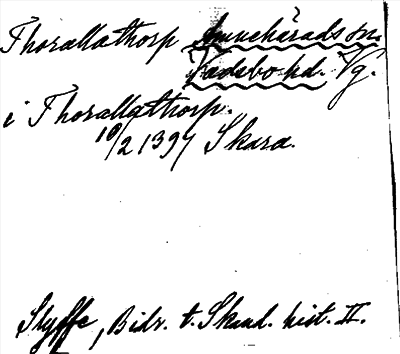 Thorallathorp Amnehärads sn.
Vadsbo hd. Vg.
i Thorallathorp.
10/2 1397 Skara.
Styffe, Bidr. t. Skand. hist. II.